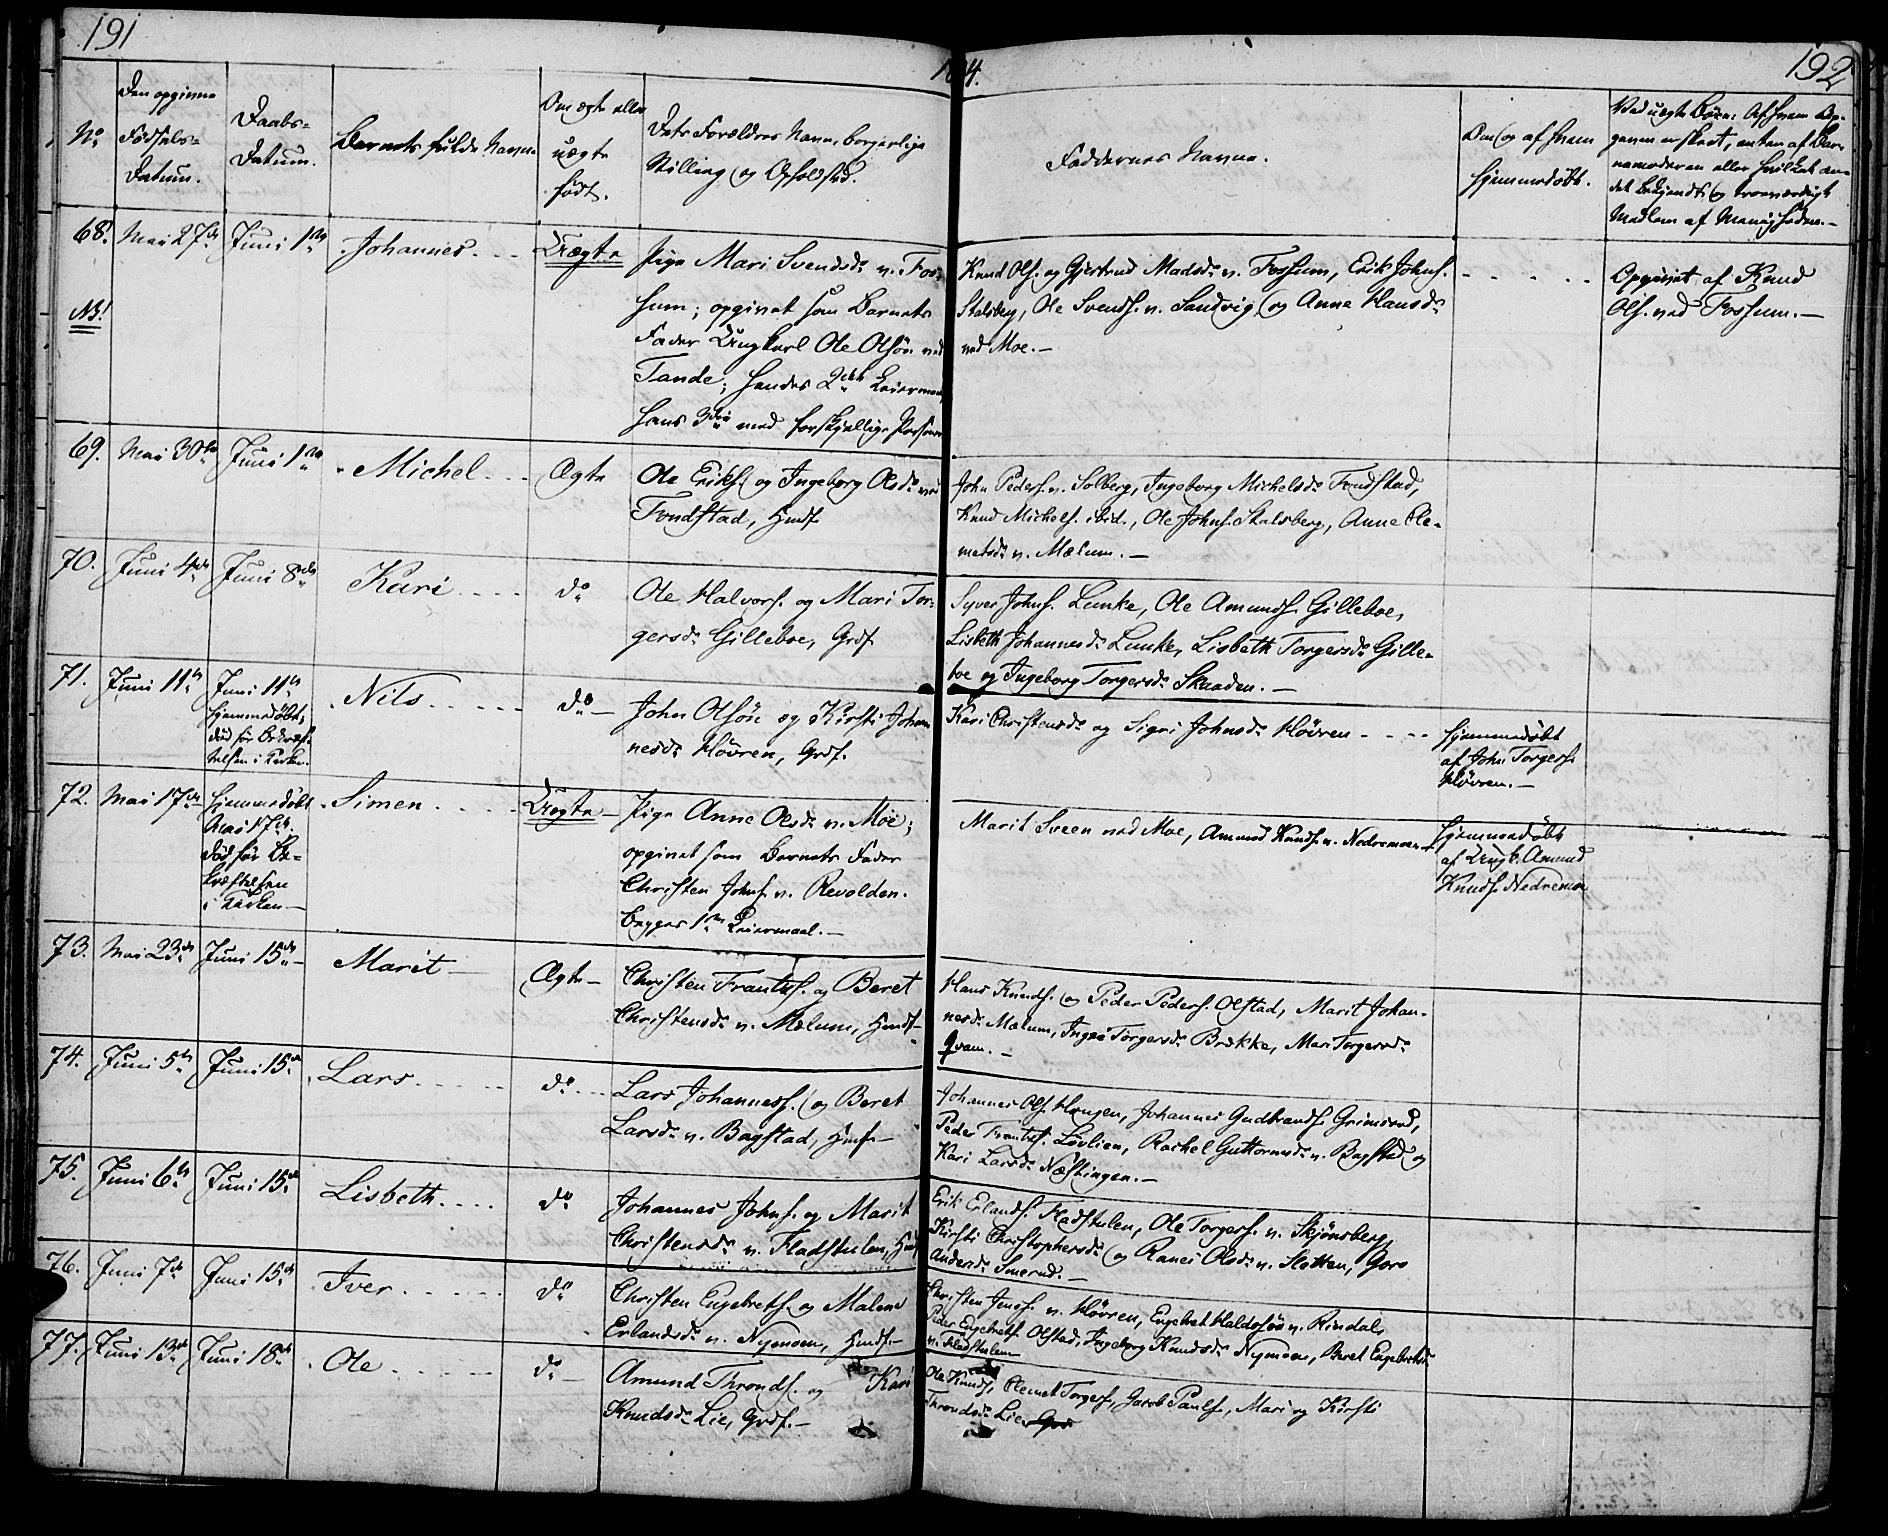 191
192
No
Den opgivne
Fødsels-
Datum.
Daabs-
Datum.
Barnets fulde Navn
Om ægte eller
uægte
født.
Dets Forældres Navn, borgerlige
Stilling og Opholdsted.
Faddernes Navne.
Om og af hvem
hjemmedøbt.
Ved uægte Børn: Af hvem Op-
givet, enten af Bar-
nemoderen eller hvilket an-
det bekjendt og troeværdigt
Medlem af Menigheden.-
68. Mai 27de Juni 1ste Johannes Uægte
NB!
Pige Mari Svendsdr v. Fos-
sum; opgivet som Barnets
Fader Ungkarl Ole Olsøn ved
Tande; hendes 2det Leiermaal,
hans 3die med forskjellige Personer
Knud Ols. og Gjertrud Madsdr v. Fossum, Erik Johns.
Stalsberg, Ole Svends. v. Sandvig og Anne Hansdr
ved Moe.-
Opgivet af Knud
Ols. ved Fossum.-
69. Mai 30te Juni 1ste Michel Ægte
Ole Eriks. og Ingeborg Olsdr ved
Fondstad, Hmf
John Peders. v. Solberg, Ingeborg Michelsdr Fondstad,
Knud Michels. ibid., Ole Johns. Stalsberg, Anne Cle-
metsdr v. Mælum.-
70. Juni 4de Juni 8de Kari do
Ole Halvors. og Mari Tor-
gersdr Gilleboe, Grdf
Syver Johns. Lunke, Ole Amunds. Gilleboe,
Lisbeth Johannesdr Lunke, Lisbeth Torgersdr Gille-
boe og Ingeborg Torgersdr Skaaden.-
71. Juni 11te Juni 11te Nils do
hjemmedøbt,
død før Bekræf-
telsen i Kirken.
John Olsøn og Kirsti Johan-
nesdr Høvren, Grdf.
Kari Christensdr og Sigri Johnsdr Høvren
hjemmedøbt
af John Torgers.
Høvren.-
72. Mai 17de Hjemmedøbt Simen Uægte
Mai 17de
død før Be-
kræftelsen
i Kirken
Pige Anne Olsdr v. Moe;
opgivet som Barnets Fader
Christen Johns. v. Revolden.
begges 1ste Leiermaal.-
Marit Sveen ved Moe, Amund Knuds. v. Nedremoen
Hjemmedøbt
af Ungk. Amund
Knuds. Nedremoe
73. Mai 23de Juni 15de Marit Ægte
Christen Frants. og Beret
Christensdr v. Mælum, Hmf
Hans Knuds. og Peder Peders. Olstad, Marit Johan-
nesdr Mælum, Inger Torgersdr Brække, Mari Torgersdr
Qvam.-
74. Juni 5te Juni 15de Lars do
Lars Johanness. og Beret
Larsdr v. Bagstad, Hmf
Johannes Ols. Haugen, Johannes Gudbrands. Grimsrud,
Peder Frants. Løvlien, Rachel Guttormsdr v. Bagstad og
Kari Larsdr Næstingen.-
75. Juni 6te Juni 15de Lisbeth do
Johannes Johns. og Marit
Christensdr v. Fladstulen, Hmf
Erik Erlands. Fladstulen, Ole Torgers. v. Skjønsberg,
Kirsti Christophersdr og Ranei Olsdr v. Sletten, Goro
Andersdr Smerud.-
76. Juni 7de Juni 15de Iver do
Christen Engebrets. og Malene
Erlandsdr v. Nymoen, Hmf
Christen Jens. v. Høvren, Engebret Haldosøn v. Rindal,
Peder Engebrets. Olstad, Ingeborg Knudsdr Nymoen, Beret Engebretsdr
v. Fladstulen
77. Juni 13de Juni 18de Ole do
Amund Thronds. og Kari
Knudsdr Lie, Grdf.
Ole Knuds., Clemet Torgers., Jacob Pauls., Mari og Kirsti
Throndsdr Lie